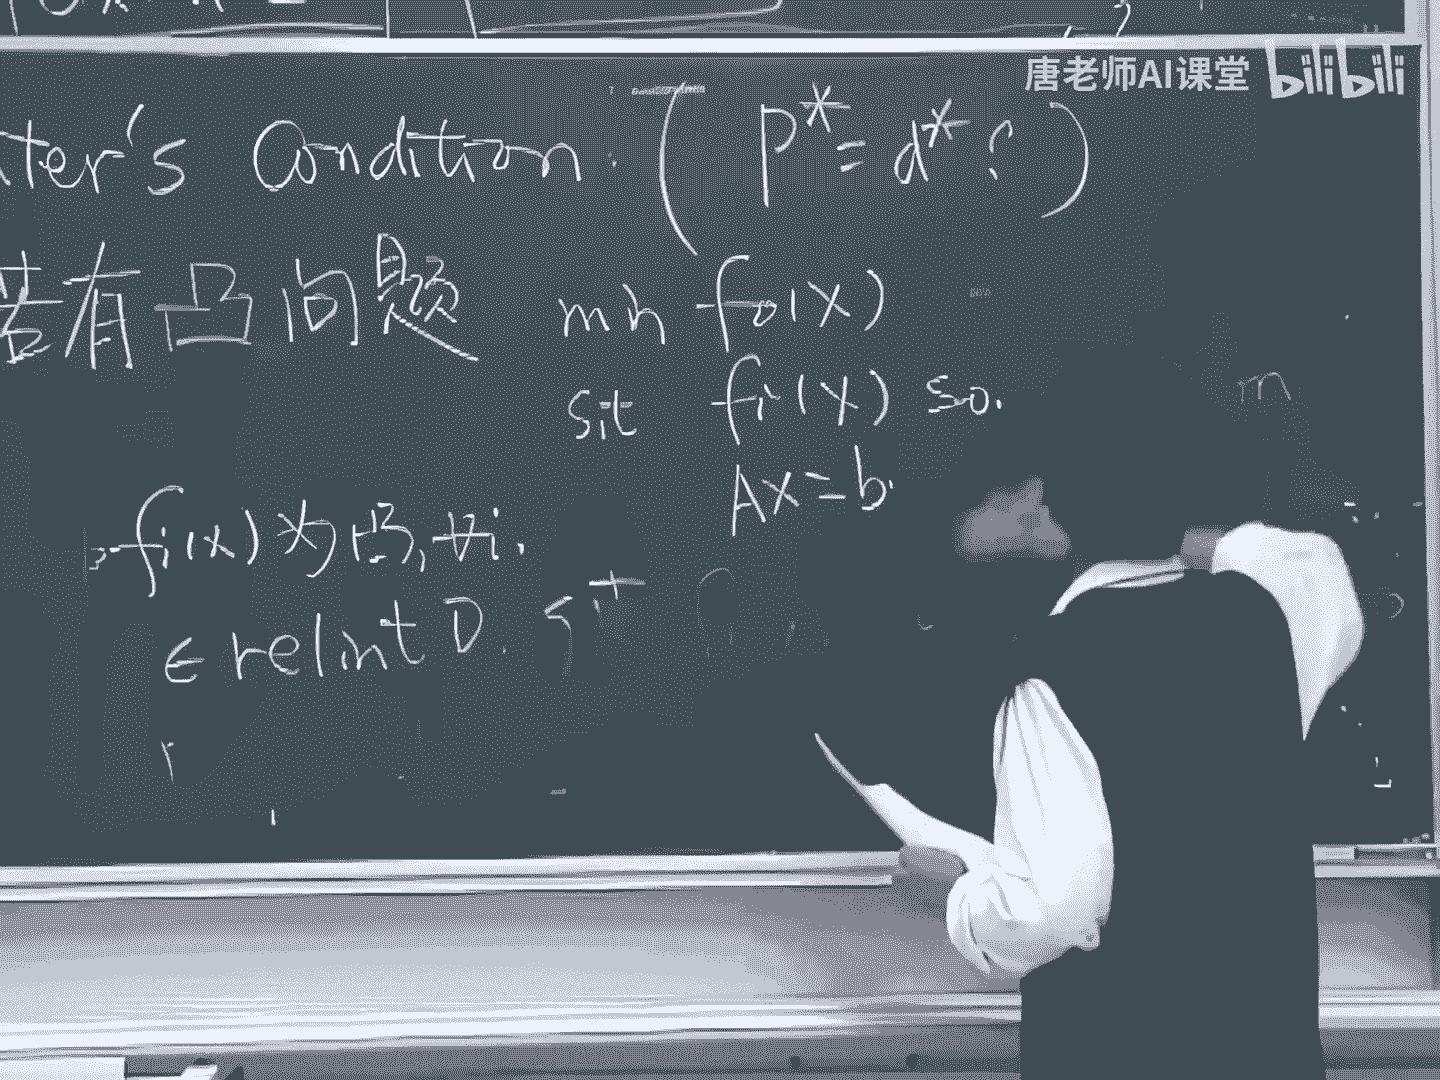 唐老师AI课堂 bilibili
ter's Condition. ( P* = d* ? )
若有凸问题 min f₀(x)
s.t f_i(x) ≤ 0.
m
Ax = b.
f_i(x) 为凸, ∀i.
∈ relint D. s.t